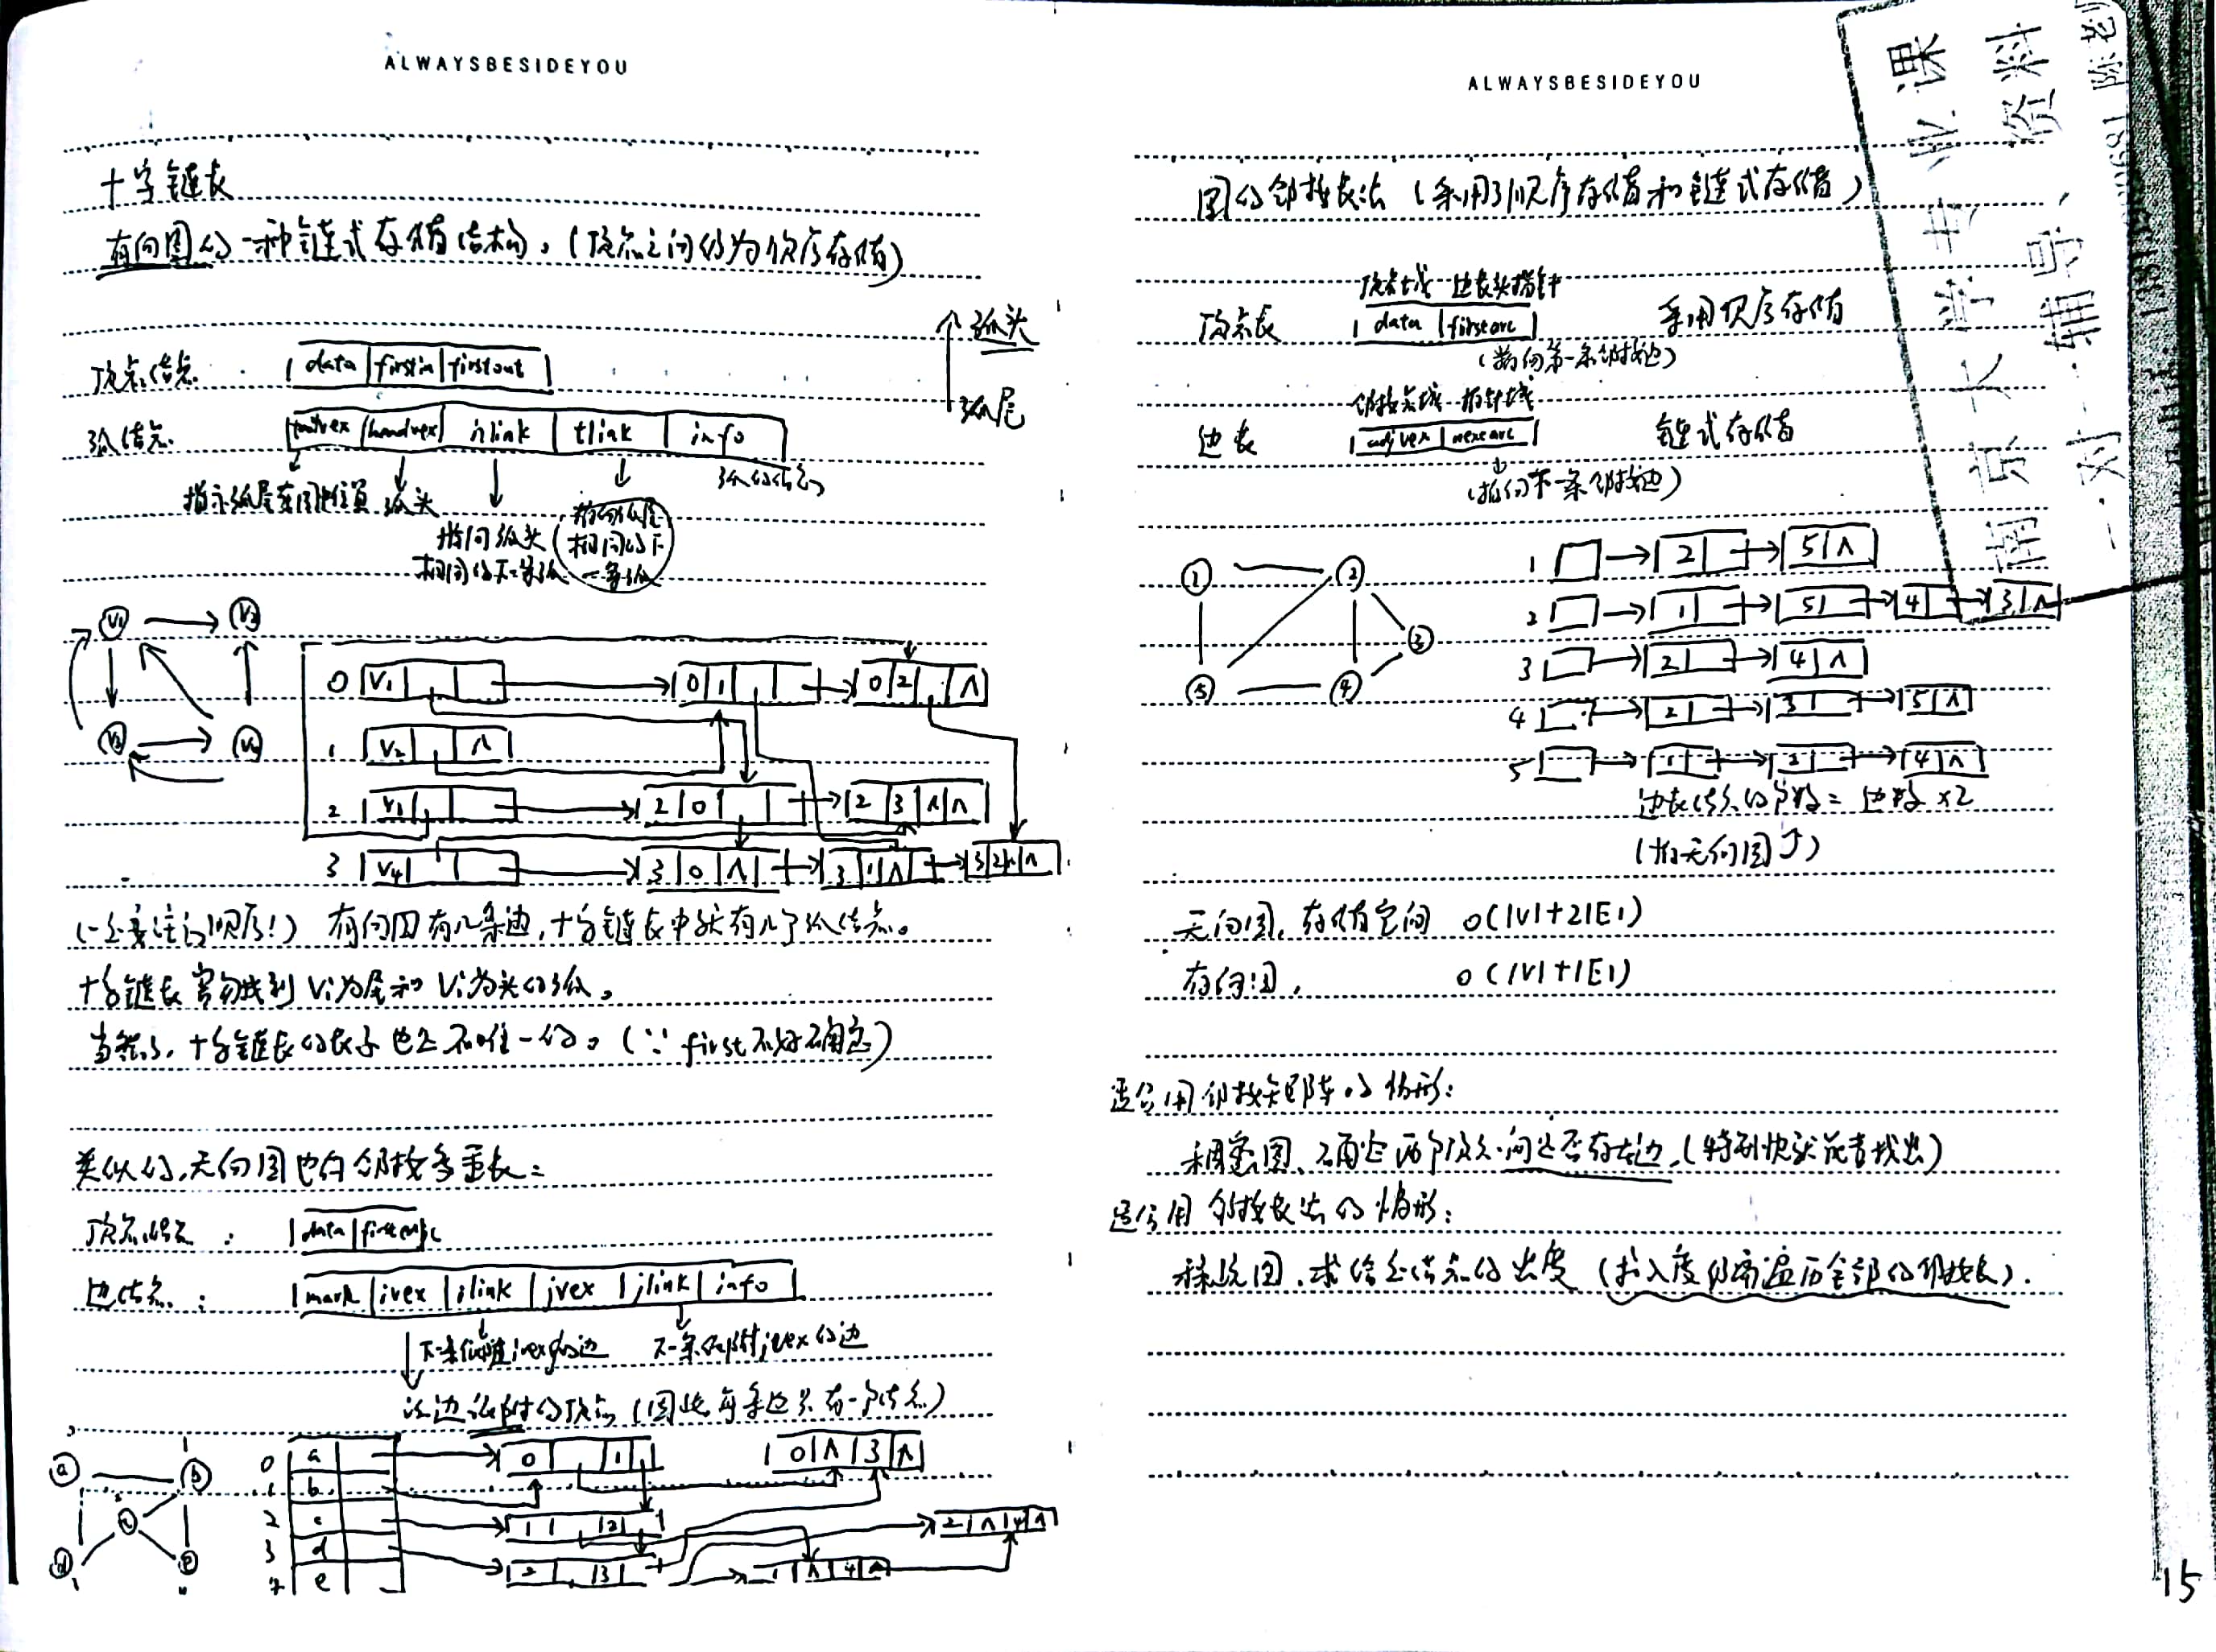 ALWAYSBESIDEYOU
十字链表
有向图的一种链式存储结构。(顶点之间仍为顺序存储)
顶点结点. data firstin firstout
弧头
弧尾
弧结点. tailvex headvex hlink tlink info
指示弧尾在图中位置 弧头
指向弧头相同的下一条弧
指向弧尾相同的下一条弧
弧的信息
V1 V2
V3 V4
0 V1 0 1 0 2 Λ
1 V2 Λ
2 V3 2 0 2 3 Λ Λ
3 V4 3 0 Λ 3 1 Λ 3 2 Λ Λ
(一定要注意顺序!) 有向图有几条边,十字链表中就有几个弧结点。
十字链表容易找到 Vi为尾和 Vi为头的弧。
当然了,十字链表的表示也是不唯一的。(∵ first不好确定)
类似的,无向图也有邻接多重表:
顶点结点: data firstedge
边结点: mark ivex ilink jvex jlink info
下一条依附ivex的边 下一条依附jvex的边
该边依附的顶点 (因此每条边只有一个结点)
a b c d e
0 a 0 1 0 Λ 3 Λ
1 b
2 c 1 2 2 Λ 4 Λ
3 d 2 3 1 Λ 4 Λ
4 e
ALWAYSBESIDEYOU
图的邻接表法 (采用了顺序存储和链式存储)
顶点域 边表头指针
顶点表 data firstarc 采用顺序存储
(指向第一条邻接边)
邻接点域 指针域
边表 adjvex nextarc 链式存储
(指向下一条邻接边)
1 2 3 4 5
1 2 5 Λ
2 1 5 4 3 Λ
3 2 4 Λ
4 2 3 5 Λ
5 1 2 4 Λ
边表结点的个数 = 边数 ×2
(指无向图)
无向图,存储空间 O(|V|+2|E|)
有向图, O(|V|+|E|)
适合用邻接矩阵的情形:
稠密图、确定两个顶点间是否存在边,(特别快就能查找出)
适合用邻接表法的情形:
稀疏图、求给定结点的出度 (求入度仍需遍历全部的邻接表).
南京大学专业课
一对一辅导,资料
15